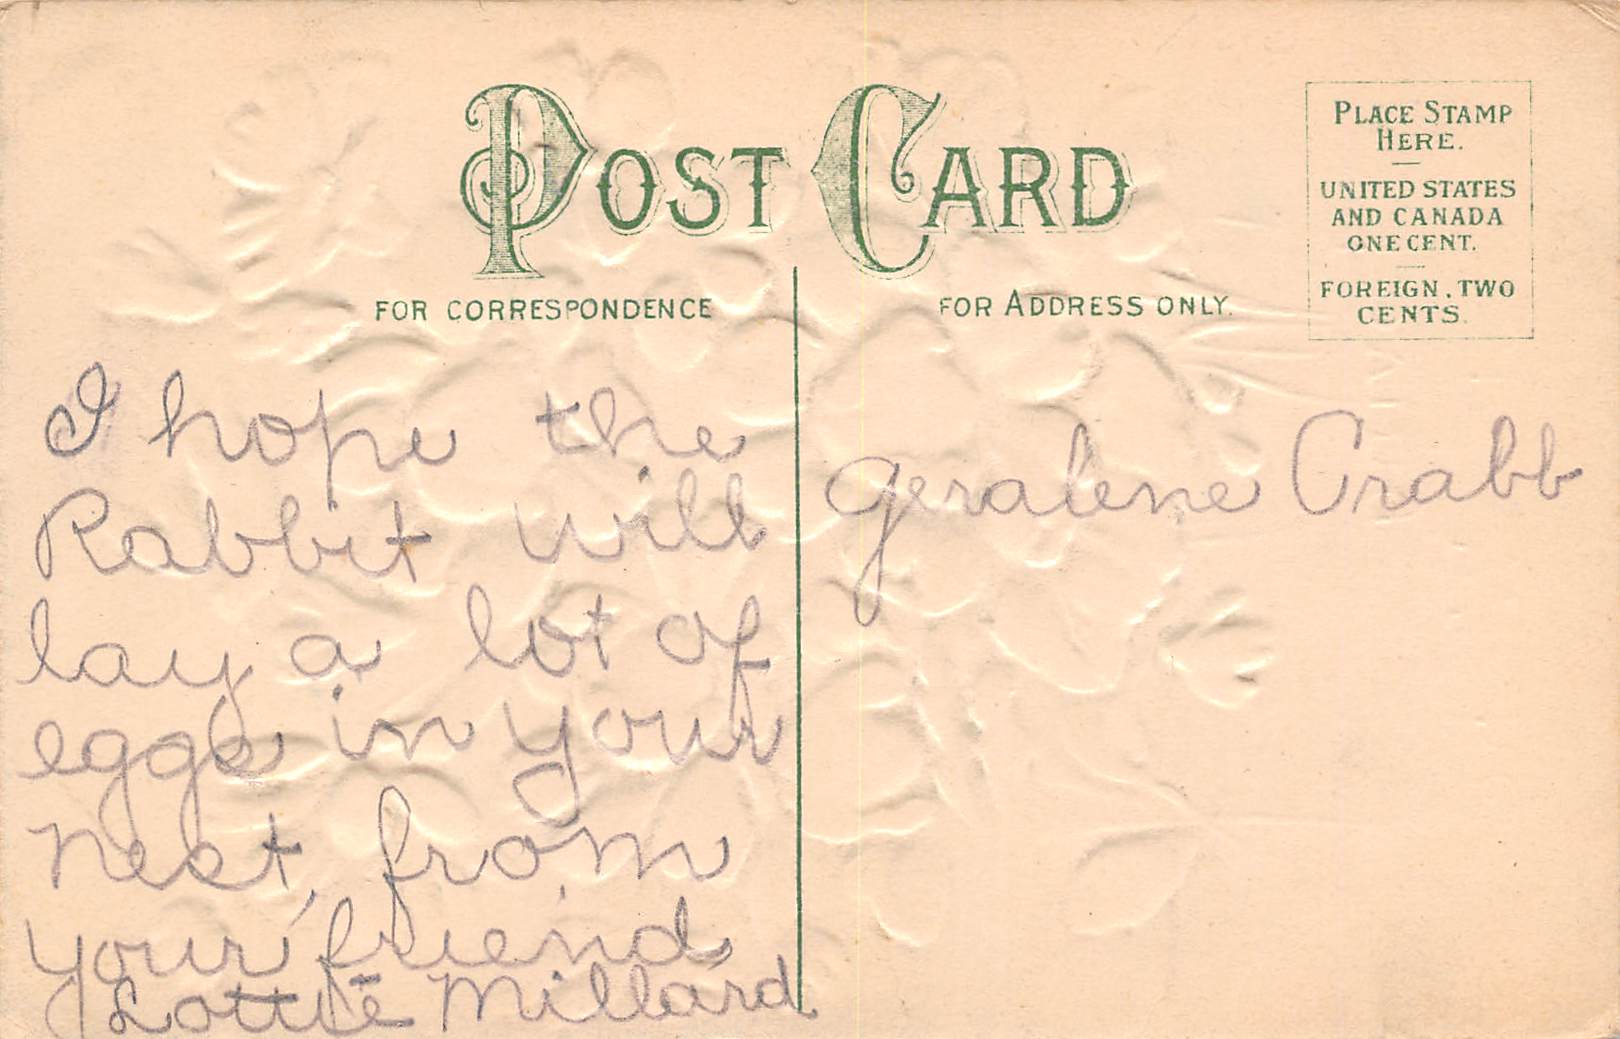 POST CARD
PLACE STAMP
HERE.
UNITED STATES
AND CANADA
ONE CENT.
FOREIGN, TWO
CENTS.
FOR CORRESPONDENCE
FOR ADDRESS ONLY.
I hope the
Rabbit will
lay a lot of
eggs in your
nest, from
your friend
Lottie Millard
Geralene Crabb